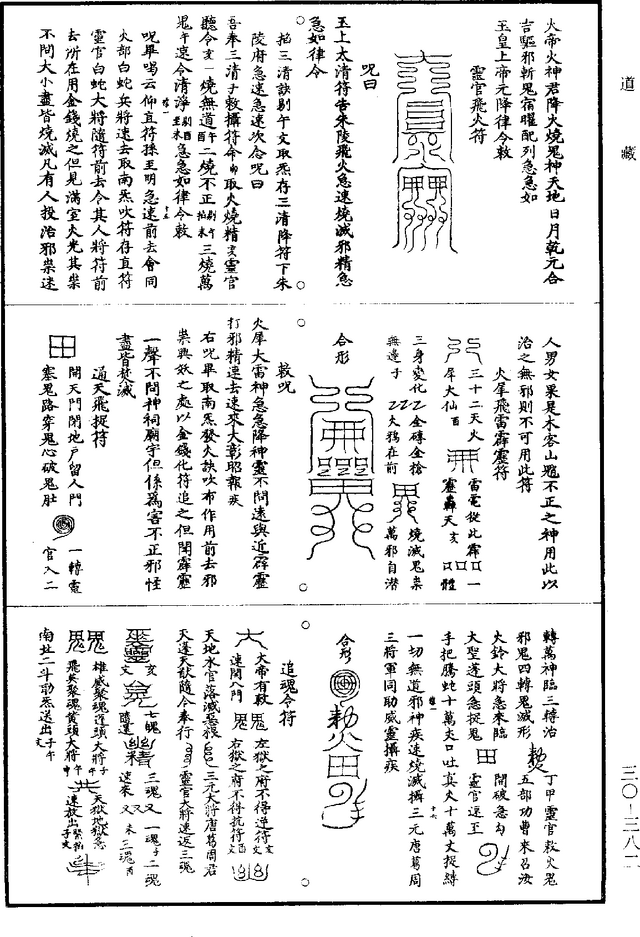 道藏
火帝火神君降火燒鬼神天地日月乾元合
吉驅邪斬鬼宿曜配列急急如
玉皇上帝元降律令敕
靈官飛火符
呪曰
玉上太清符告朱陵飛火急速燒滅邪精急
急如律令
掐三清訣剔午文取炁存三清降符下朱
陵府急速急速次念呪曰
吾奉三清子敕攝符命卯取火燒精亥靈官
聽令亥一燒無道酉二燒不正掐未三燒萬
鬼午速令清淨急急如律令敕
呪畢喝云仰直符孫至明急速前去會同
火部白蛇兵將速去取南炁吹符存直符
靈官白蛇大將隨符前去令其人將符前
去所在用金錢燒之但見滿室火光其祟
不問大小盡皆燒滅凡有人投治邪祟迷
人男女果是木客山魈不正之神用此以
治之無邪則不可用此符
火犀飛雷霹靂符
三十二天火
雷電從此霹
一
犀大仙酉
靂轟天亥
體
三身變化
金磚金槍
燒滅鬼祟
無邊子
火鴉在前
萬邪自潛
合形
敕呪
火犀大雷神急急降神靈不問遠與近霹靂
打邪精速去速來大彰昭報疾
右呪畢取南炁發火訣吹布作用前去邪
祟與妖之處以金錢化符追之但聞霹靂
一聲不問神祠廟宇但係為害不正邪怪
盡皆焚滅
通天飛捉符
開天門閉地戶留人門
一轉靈
塞鬼路穿鬼心破鬼肚
官入二
轉萬神臨三轉治
丁甲靈官敕火鬼
邪鬼四轉鬼滅形
五部功曹來召汝
火鈴大將急來臨
開破急勾
大聖蓬頭急捉鬼
靈官速至
手把騰蛇十萬丈口吐真火十萬丈捉縛
一切無道邪神疾速燒滅攝三元唐葛周
三將軍同助威靈攝疾
合形
追魂令符
大帝有敕
左獄之府不得逆符亥文
速開八門
右獄之府不得抗符酉文
天地水官落滅惡殺
三元大將唐葛周君
天蓬天猷隨令奉行
靈官大將速返三魂
亥文
七魄隨還
三魂又速來
一魂子二魂
未三魂酉
雄威聚魂蓬頭大將子
天獄地獄急
飛英聚魂黃頭大將
速放出子文
南北二斗勒炁送出子午文
三〇-三八二